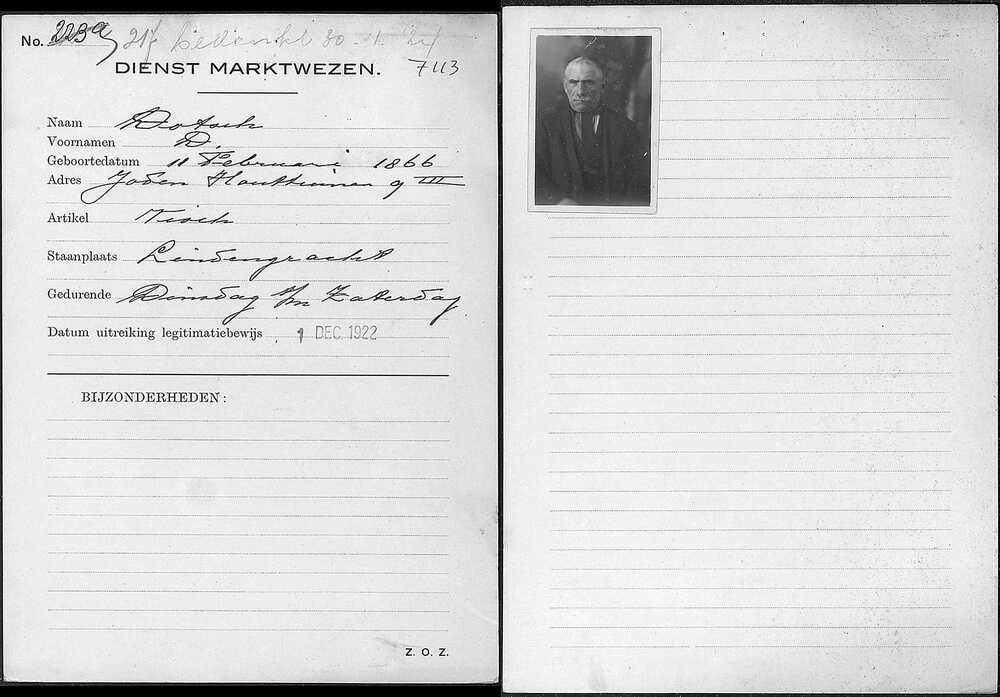 No. 223a 217 bedankt 30-1-24
DIENST MARKTWEZEN. 7113
Naam Dotsch
Voornamen D.
Geboortedatum 11 Februari 1866
Adres Joden Houttuinen 9 III
Artikel Visch
Staanplaats Lindengracht
Gedurende Dinsdag t/m Zaterdag
Datum uitreiking legitimatiebewijs 1 DEC. 1922
BIJZONDERHEDEN:
Z. O. Z.